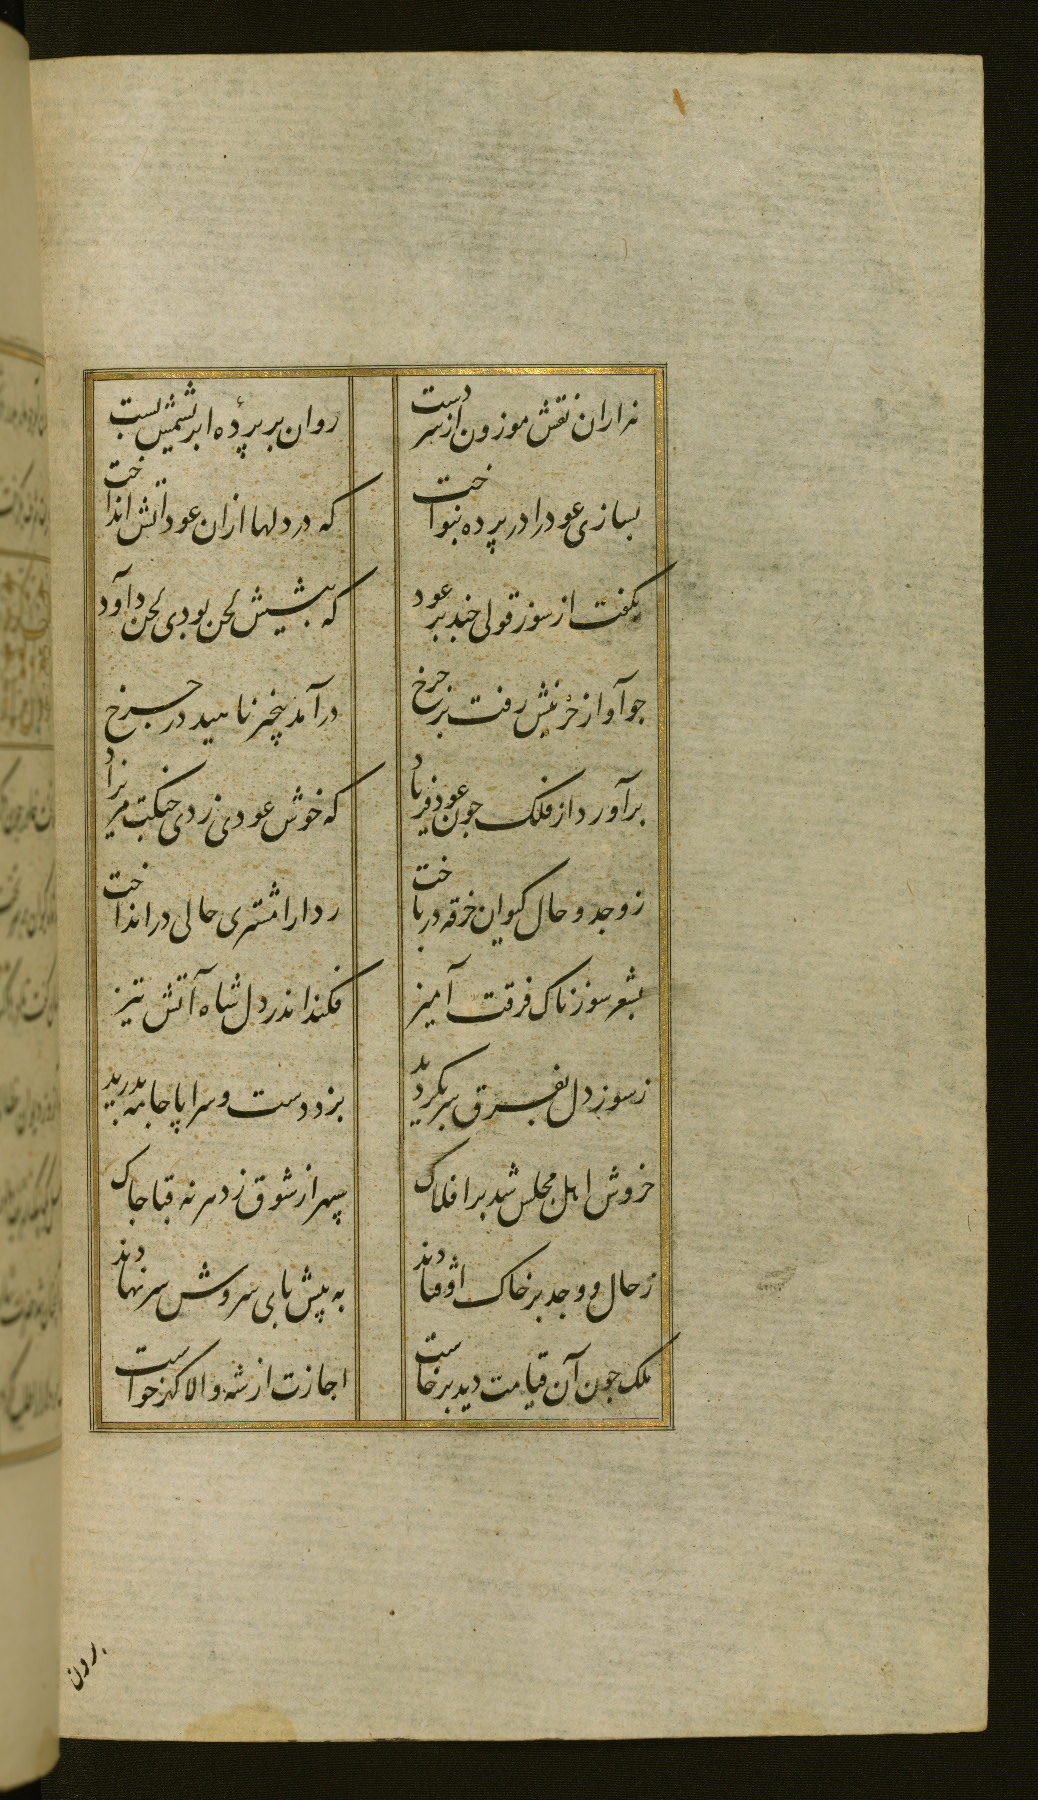 هزاران نقش موزون از سر دست روان بر پرده ابریشمش بست
بسازی عود را در پرده بنواخت که در دلها ازان عود آتش انداخت
بگفت از سوز قولی چند بر عود که پیشش لحن بودی لحن داود
چو آواز حزینش رفت بر چرخ درآمد پنجه ناهید در چرخ
برآورد از فلک چون عود فریاد که خوش عودی زدی چنگت مریزاد
ز وجد و حال کیوان خرقه درباخت ردا را مشتری حالی درانداخت
بشعر سوزناک فرقت آمیز فکند اندر دل شاه آتش تیز
ز سوز دل بفرق سر بگردید بزد دست و سراپا جامه بدرید
خروش اهل مجلس شد بر افلاک سپهر از شوق زد هر نه قبا چاک
ز حال و وجد بر خاک اوفتادند به پیش پای سروش سر نهادند
ملک چون آن قیامت دید برخاست اجازت از شه والا گهر خواست
برون